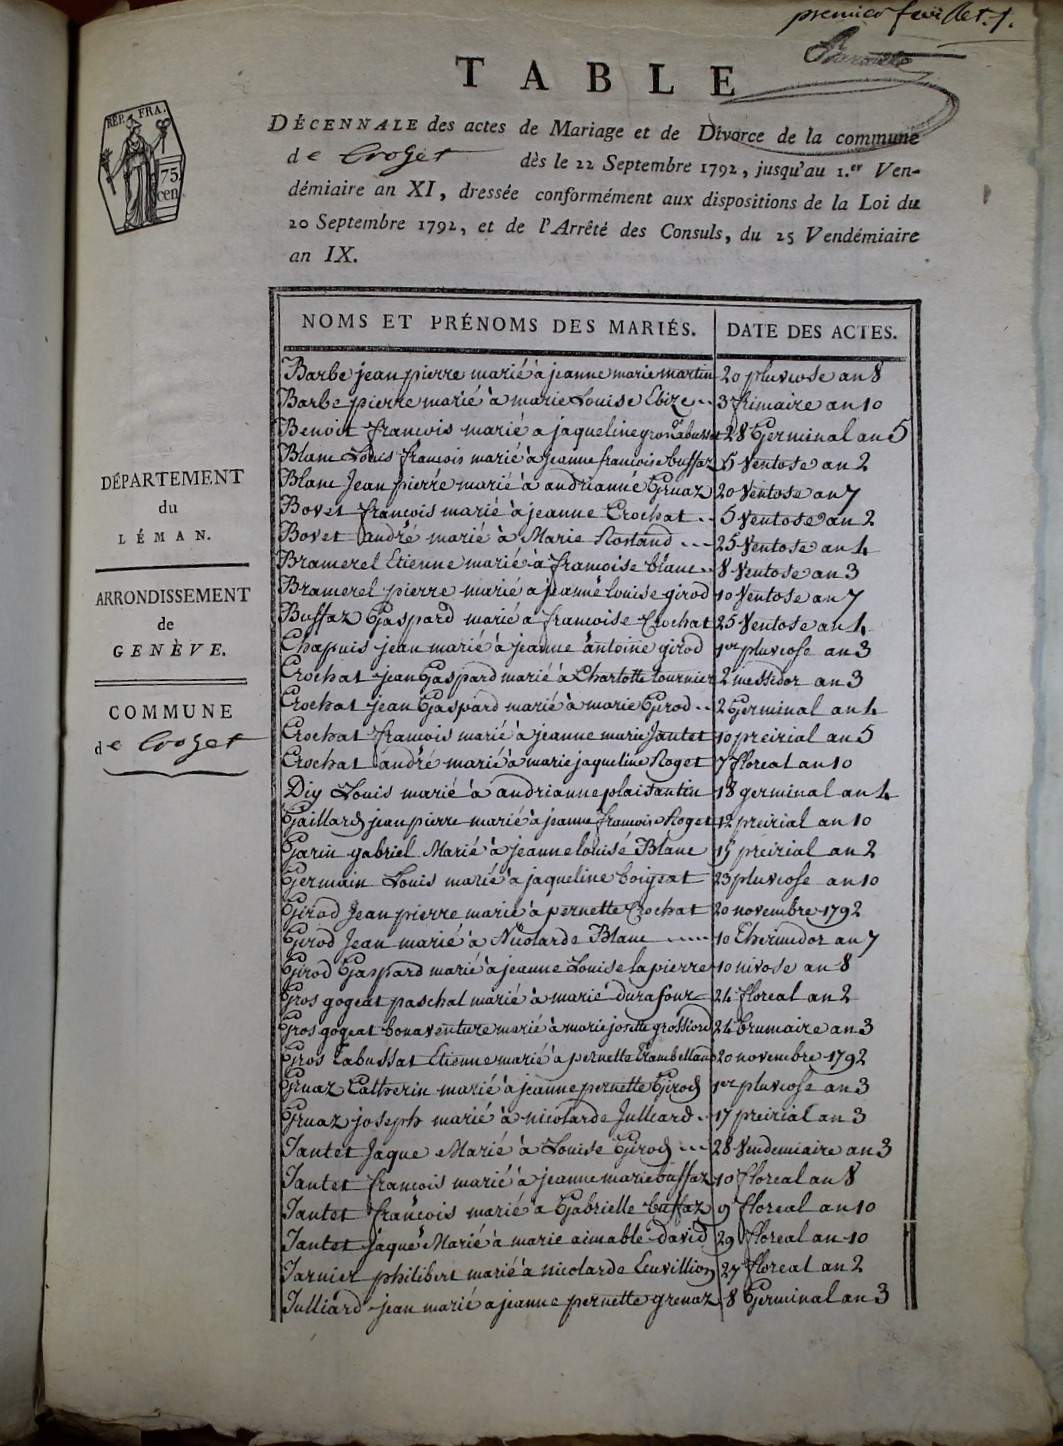 premier feuillet. 1.
TABLE
DÉCENNALE des actes de Mariage et de Divorce de la commune
de Crozet dès le 22 Septembre 1792, jusqu'au 1.er Ven-
démiaire an XI, dressée conformément aux dispositions de la Loi du
20 Septembre 1792, et de l'Arrêté des Consuls, du 25 Vendémiaire
an IX.
REP. FRA.
75
cen.
DÉPARTEMENT
du
LÉMAN.
ARRONDISSEMENT
de
GENÈVE.
COMMUNE
de Crozet
NOMS ET PRÉNOMS DES MARIÉS. DATE DES ACTES.
Barbe jean pierre marié à jeanne marie martin 20 pluviose an 8
Barbe pierre marié à marie Louise Ebize .. 3 frimaire an 10
Benoit francois marié a jaqueline gros Labussat 28 Germinal an 5
Blanc Louis francois marié à Jeanne francoise buffaz 5 Ventose an 2
Blanc Jean pierre marié à andrianne Gruaz 20 Ventose an 7
Bovet francois marié à jeanne Crochat .. 5 Ventose an 2
Bovet andré marié à Marie Rostand ... 25 Ventose an 4
Bramerel Etienne marié à francoise blanc .. 8 Ventose an 3
Bramerel pierre marié à jeanne louise girod 10 Ventose an 7
Buffaz Gaspard marié à francoise Crochat 25 Ventose an 4
Chapuis jean marié à jeanne antoine girod 1er pluviose an 3
Crochat jean Gaspard marié à Charlotte tournier 2 messidor an 3
Crochat jean Gaspard marié à marie Girod .. 2 Germinal an 4
Crochat francois marié à jeanne marie Jantet 10 preirial an 5
Crochat andré marié à marie jaqueline Roget 7 floreal an 10
Diy Louis marié à andrianne plaisantin 18 germinal an 4
Gaillard jean pierre marié à jeanne francoise Roget 12 preirial an 10
Garin gabriel Marié à jeanne louise Blanc 15 preirial an 2
Germain Louis marié à jaqueline boigeat 23 pluviose an 10
Girod Jean pierre marié à pernette Crochat 20 novembre 1792
Girod Jean marié à Nicolarde Blanc ..... 10 thermidor an 7
Girod Gaspard marié à jeanne Louise lapierre 10 nivose an 8
Gros gogeat paschal marié à marie durafour 24 floreal an 2
Gros gogeat bonaventure marié à marie josette grossiord 24 brumaire an 3
Gros Labussat Etienne marié à pernette 20 novembre 1792
Gruaz Catherin marié à jeanne pernette Girod 1er pluviose an 3
Gruaz joseph marié à nicolarde Julliard .. 17 preirial an 3
Jantet Jaque Marié à Louise Girod ... 28 Vendemiaire an 3
Jantet francois marié à jeanne marie buffaz 10 floreal an 8
Jantet francois marié à Gabrielle buffaz 9 floreal an 10
Jantet Jaque Marié à marie aimable david 29 floreal an 10
Jarnier philibert marié à nicolarde Levillion 27 floreal an 2
Julliard jean marié a jeanne pernette grenaz 8 Germinal an 3